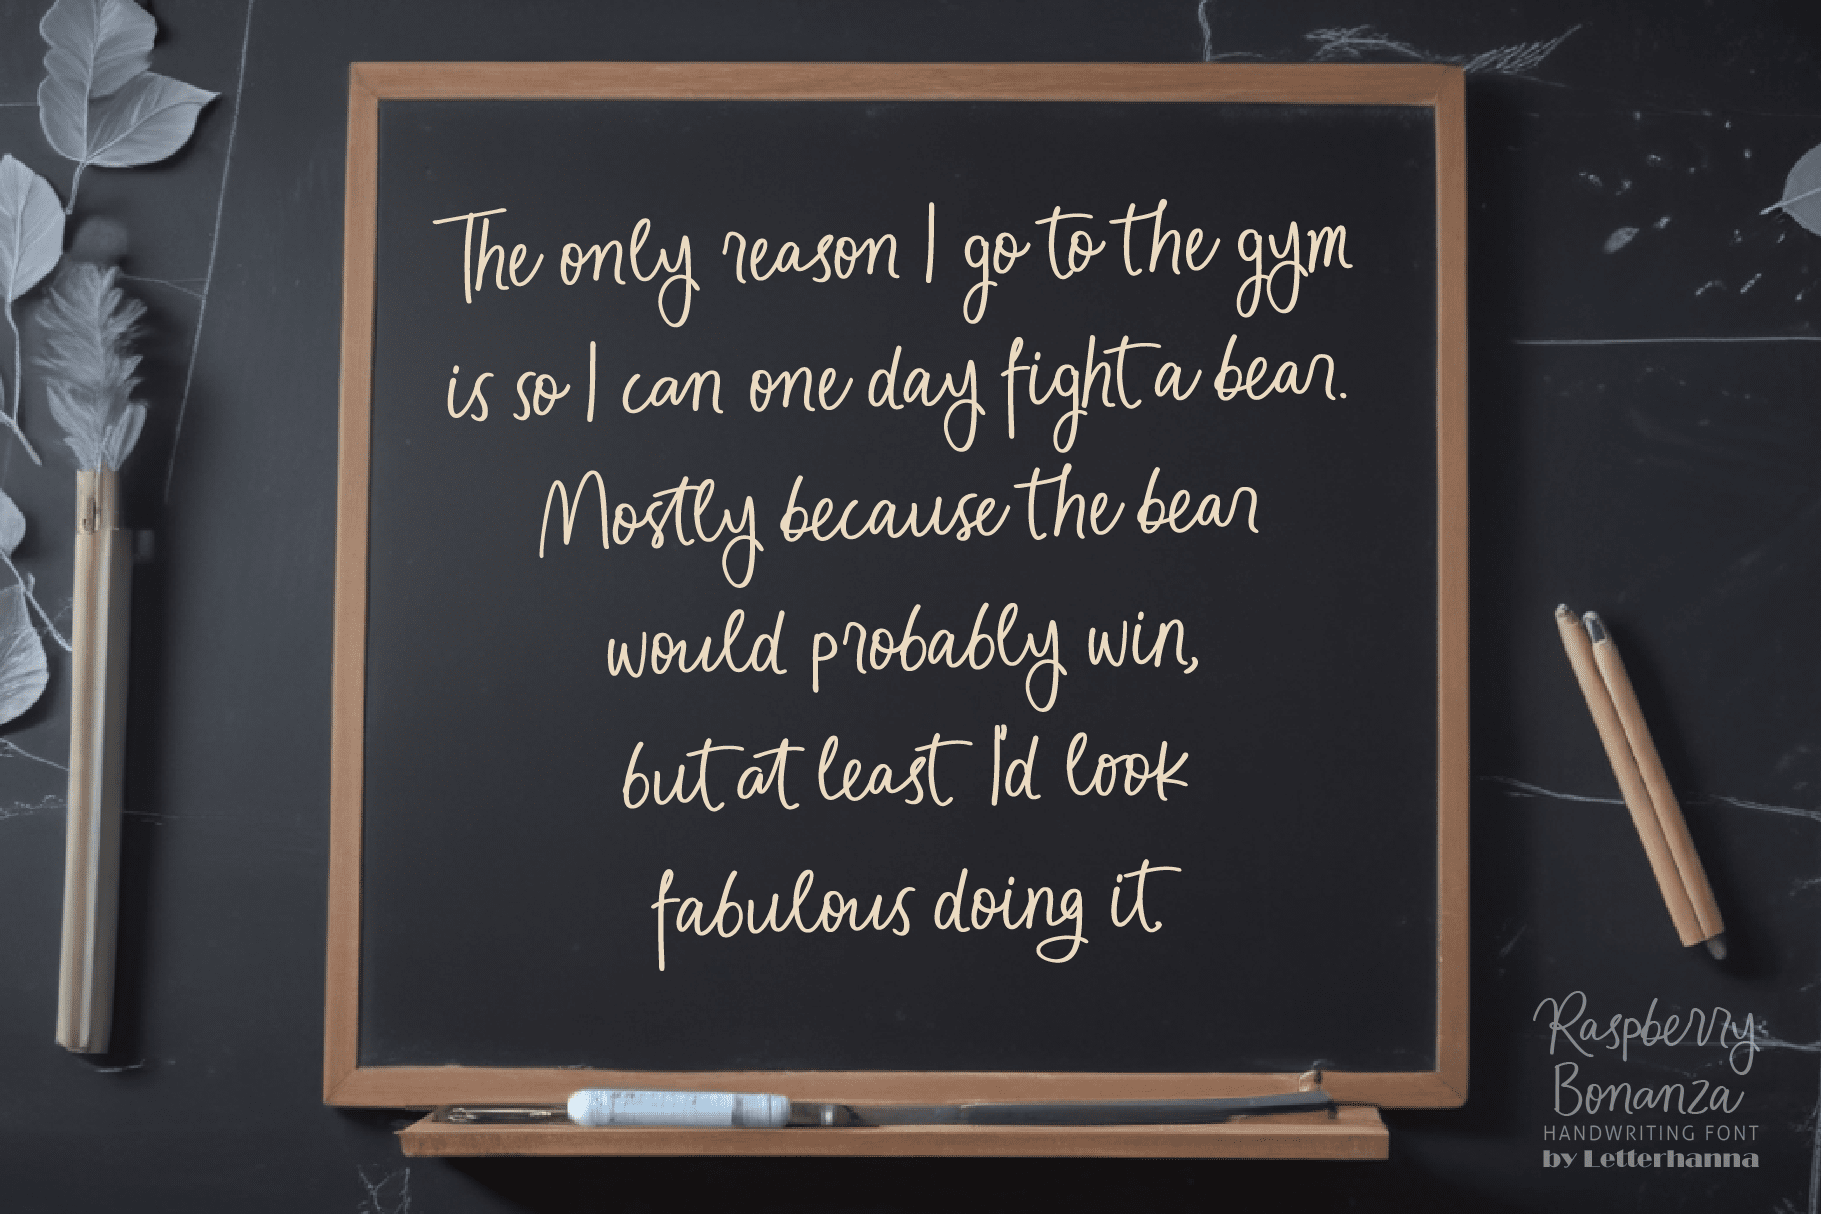 The only reason I go to the gym
is so I can one day fight a bear.
Mostly because the bear
would probably win,
but at least I'd look
fabulous doing it.
Raspberry
Bonanza
HANDWRITING FONT
by Letterhanna